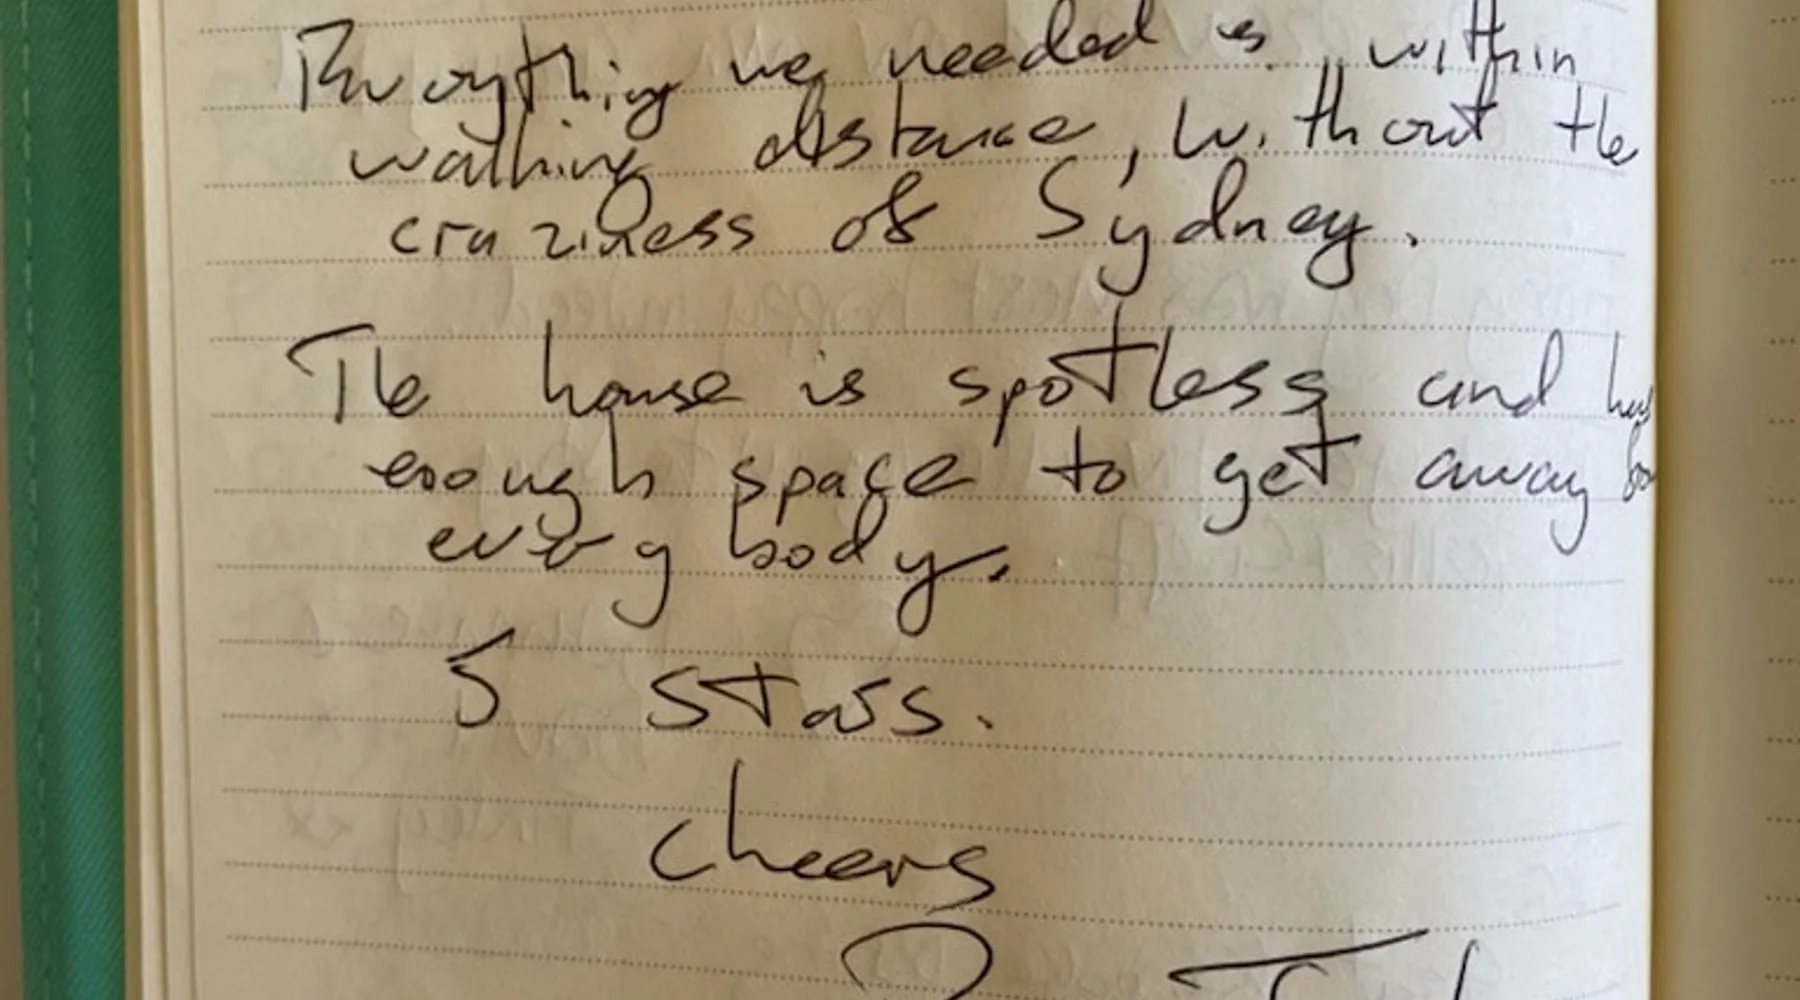 Everything we needed is within
walking distance, without the
craziness of Sydney.
The house is spotless and has
enough space to get away from
everybody.
5 stars.
Cheers